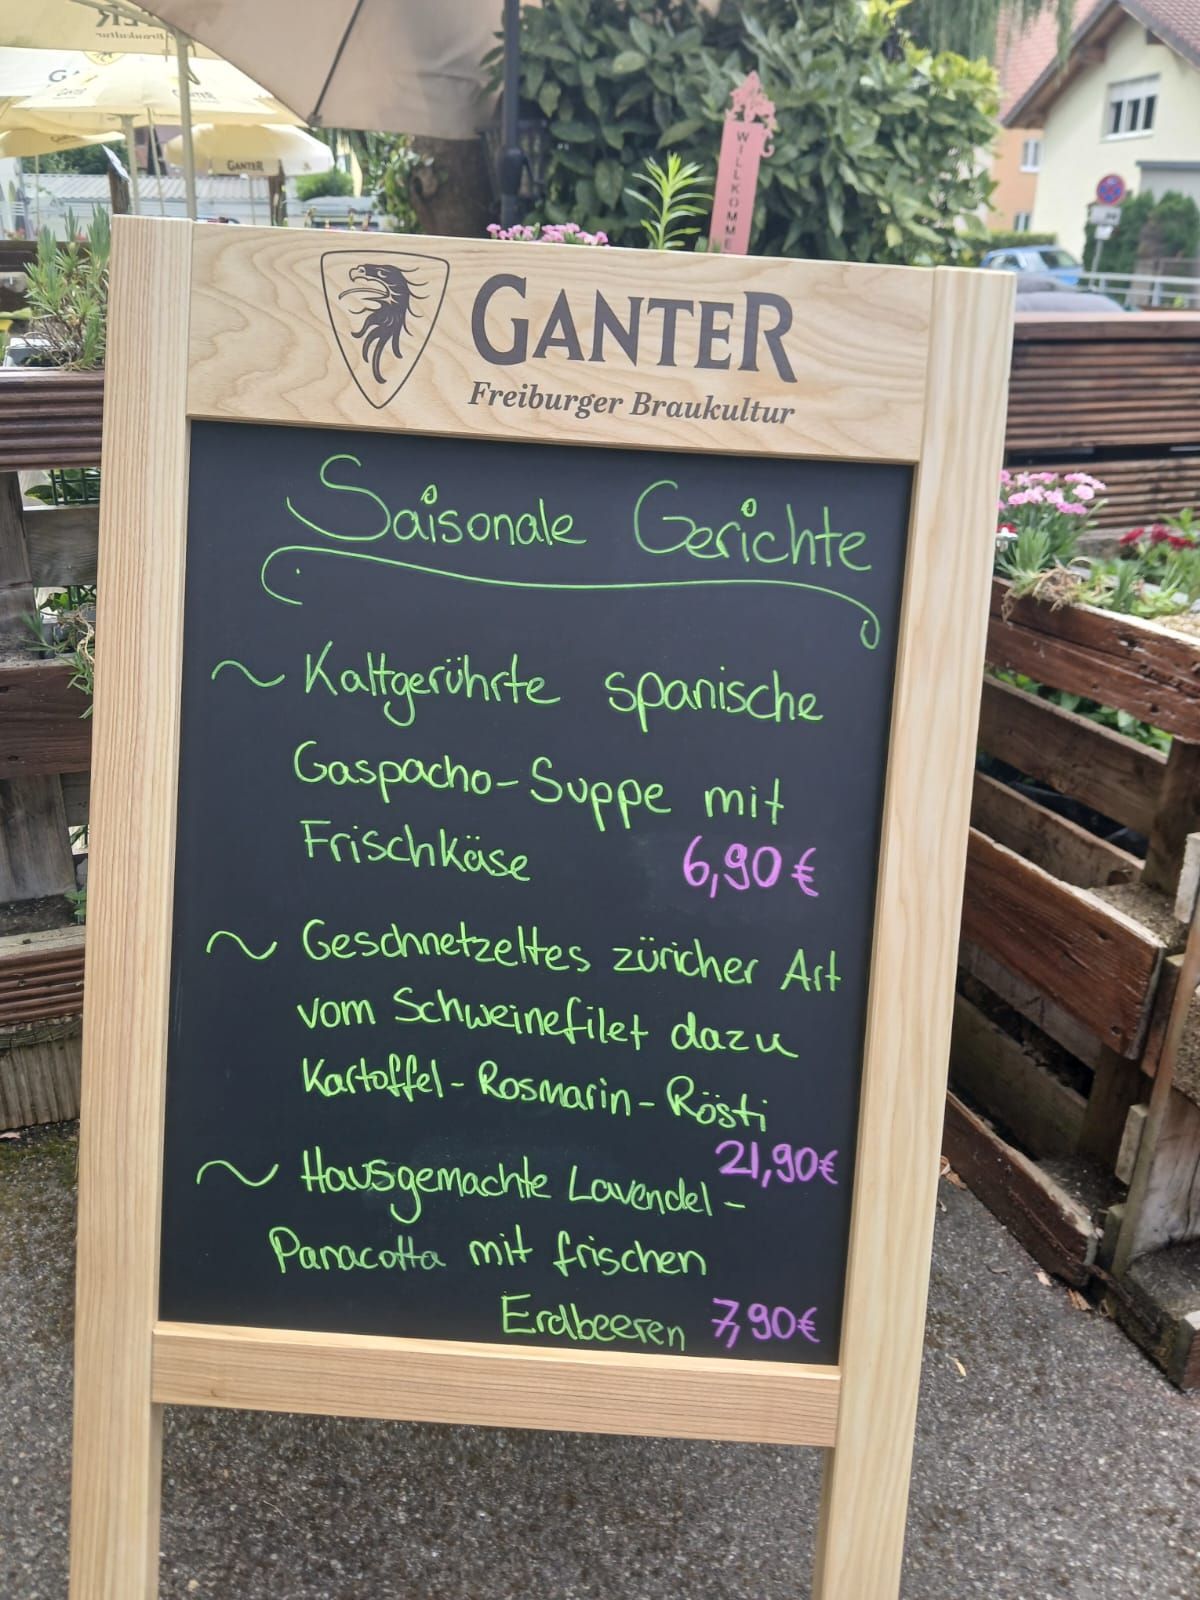 GANTER
WILLKOMME
GANTER
Freiburger Braukultur
Saisonale Gerichte
~ Kaltgerührte spanische
Gaspacho-Suppe mit
Frischkäse 6,90€
~ Geschnetzeltes züricher Art
vom Schweinefilet dazu
Kartoffel-Rosmarin-Rösti
21,90€
~ Hausgemachte Lavendel-
Panacotta mit frischen
Erdbeeren 7,90€